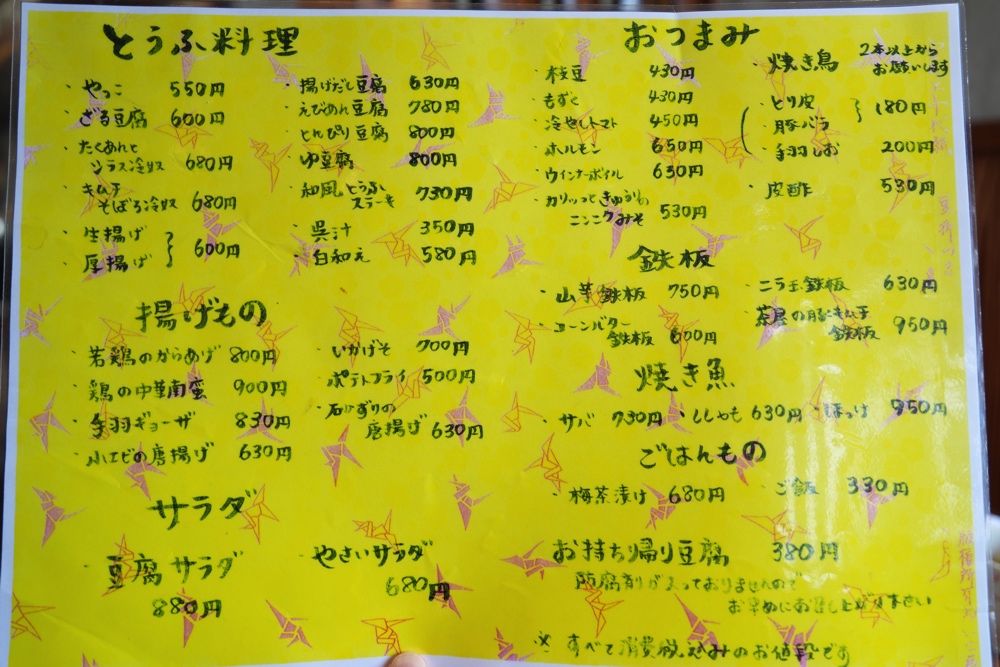 とうふ料理
・やっこ 550円
・ざる豆腐 600円
・たくあんと
シラス冷奴 680円
・キムチ
そぼろ冷奴 680円
・生揚げ
・厚揚げ } 600円
・揚げだし豆腐 630円
・えびあん豆腐 780円
・とんぴり豆腐 800円
・ゆ豆腐 800円
・和風とうふ
ステーキ 730円
・呉汁 350円
・白和え 580円
揚げもの
・若鶏のからあげ 800円
・鶏の中華南蛮 900円
・手羽ギョーザ 830円
・小エビの唐揚げ 630円
・いかげそ 700円
・ポテトフライ 500円
・石かずりの
唐揚げ 630円
サラダ
・豆腐サラダ
880円
・やさいサラダ
680円
おつまみ
・枝豆 430円
・もずく 430円
・冷やしトマト 450円
・ホルモン 650円
・ウインナーボイル 630円
・カリッっときゅうりの
ニンニクみそ 530円
・焼き鳥 2本以上から
お願いします
・とり皮
・豚バラ } 180円
・手羽しお 200円
・皮酢 530円
鉄板
・山芋鉄板 750円
・コーンバター
鉄板 600円
・ニラ玉鉄板 630円
・茶屋の豚キムチ
鉄板 950円
焼き魚
・サバ 730円 ・ししゃも 630円 ・ほっけ 950円
ごはんもの
・梅茶漬け 680円 ・ご飯 330円
お持ち帰り豆腐 380円
防腐剤が入っておりませんので
お早めにお召し上がり下さい
※ すべて消費税込みのお値段です